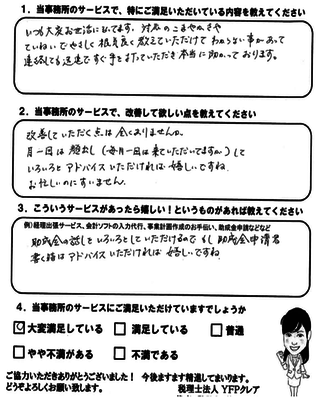 1. 当事務所のサービスで、特にご満足いただいている内容を教えてください
いつも大変お世話になってます。対応のこまやかさや
ていねいでやさしく根気良く教えていただけて わからない事があって
連絡しても迅速ですぐ手をうっていただき本当に助かっております。
2. 当事務所のサービスで、改善して欲しい点を教えてください
改善していただく点は全くありませんの。
月一回は顔出し(毎月一回は来ていただいてますが)して
いろいろとアドバイスいただければ嬉しいですね
お忙しいのにすいません。
3. こういうサービスがあったら嬉しい!というものがあれば教えてください
例)経理出張サービス、会計ソフトの入力代行、事業計画作成のお手伝い、助成金申請などなど
助成金の話しをいろいろとしていただけるので もし助成金申請
書く時はアドバイスいただければ嬉しいですね。
4. 当事務所のサービスにご満足いただけていますでしょうか
大変満足している 満足している 普通
やや不満がある 不満である
ご協力いただきありがとうございました! 今後ますます精進してまいります。
どうぞよろしくお願い致します。 税理士法人 YFPクレア